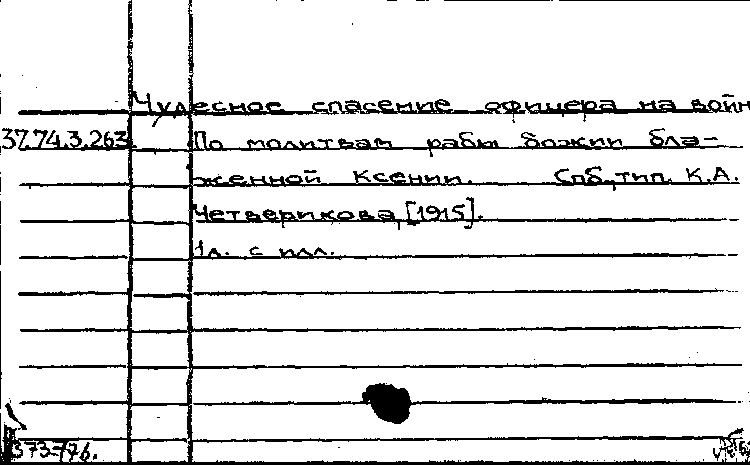 Чудесное спасение офицера на войн
37.74.3.263 По молитвам рабы божии бла-
женной Ксении. Спб., тип. К.А.
Четверикова, [1915].
1л. с илл.
373-776.